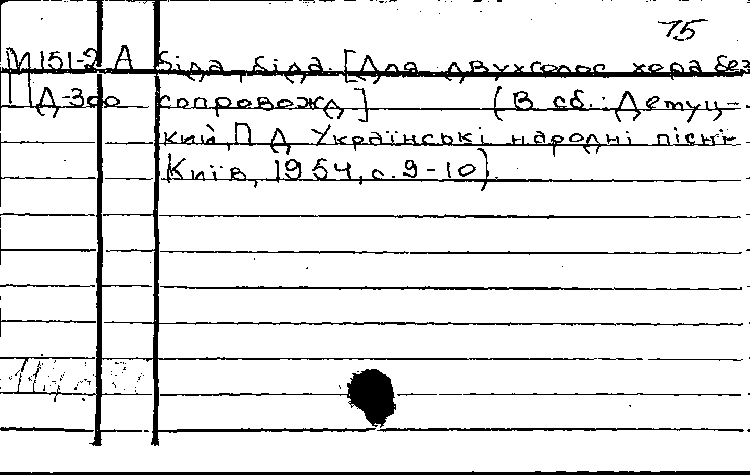 75
М 151-2 А біда, біда. [Для двухголос хора без
Д-300 сопровожд] (В сб.: Демуц-
кий, П Д Українські народні пісні
Київ, 1954, с. 9-10)